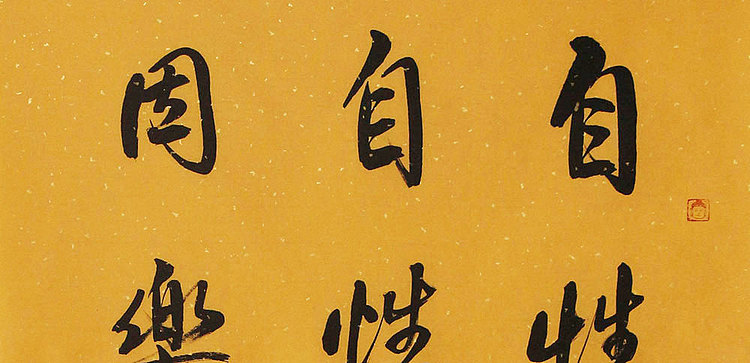 自性
自性
周樂